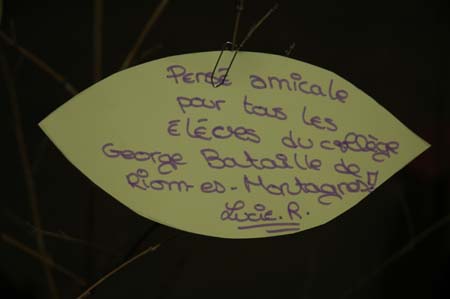 Pensé amicale
pour tous les
élèves du collège
George Bataille de
Riom-es-Montagnes!
Lucie. R.